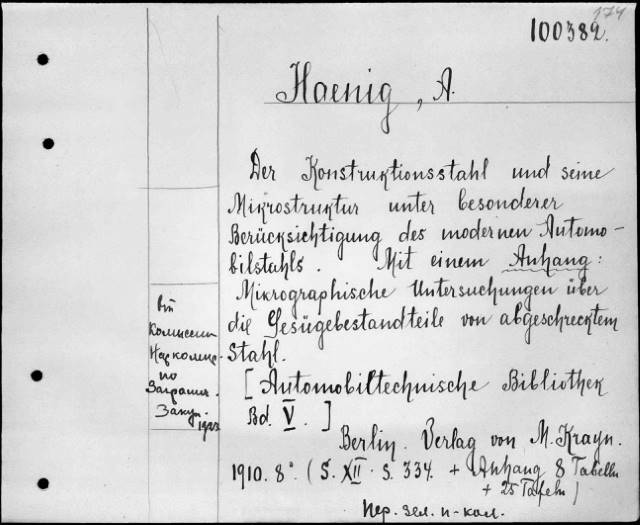 174
100382.
Haenig, A.
Der Konstruktionsstahl und seine
Mikrostruktur unter besonderer
Berücksichtigung des modernen Automo-
bilstahls. Mit einem Anhang:
Mikrographische Untersuchungen über
die Gesügebestandteile von abgeschrecktem
Stahl.
[Automobiltechnische Bibliothek
Bd. V.]
Berlin. Verlag von M. Krayn.
1910. 8°. (S. XII. S. 334. + Anhang 8 Tabelln
+ 25 Tafeln)
Пер. зел. п-кол.
Комиссии
по
Заграни.
Закуп.